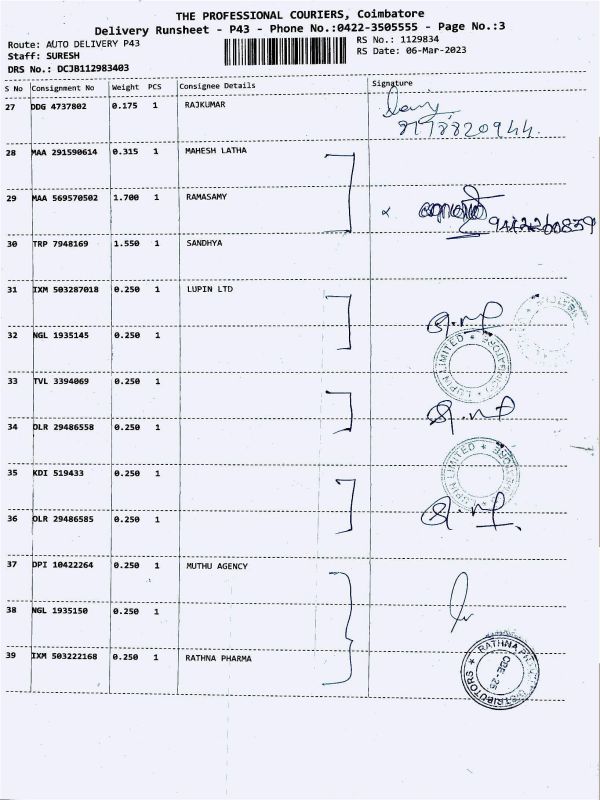 THE PROFESSIONAL COURIERS, Coimbatore
Delivery Runsheet - P43 - Phone No.:0422-3505555 - Page No.:3
Route: AUTO DELIVERY P43
RS No.: 1129834
Staff: SURESH
RS Date: 06-Mar-2023
DRS No.: DCJB112983403
S No Consignment No Weight PCS Consignee Details Signature
27 DDG 4737802 0.175 1 RAJKUMAR
28 MAA 291590614 0.315 1 MAHESH LATHA
29 MAA 569570502 1.700 1 RAMASAMY
30 TRP 7948169 1.550 1 SANDHYA
31 IXM 503287018 0.250 1 LUPIN LTD
32 NGL 1935145 0.250 1
LUPIN LIMITED ★ COIMBATORE
33 TVL 3394069 0.250 1
34 DLR 29486558 0.250 1
LUPIN LIMITED ★
35 KDI 519433 0.250 1
36 DLR 29486585 0.250 1
37 DPI 10422264 0.250 1 MUTHU AGENCY
38 NGL 1935150 0.250 1
39 IXM 503222168 0.250 1 RATHNA PHARMA
RATHNA DISTRIBUTORS ★
CBE-25